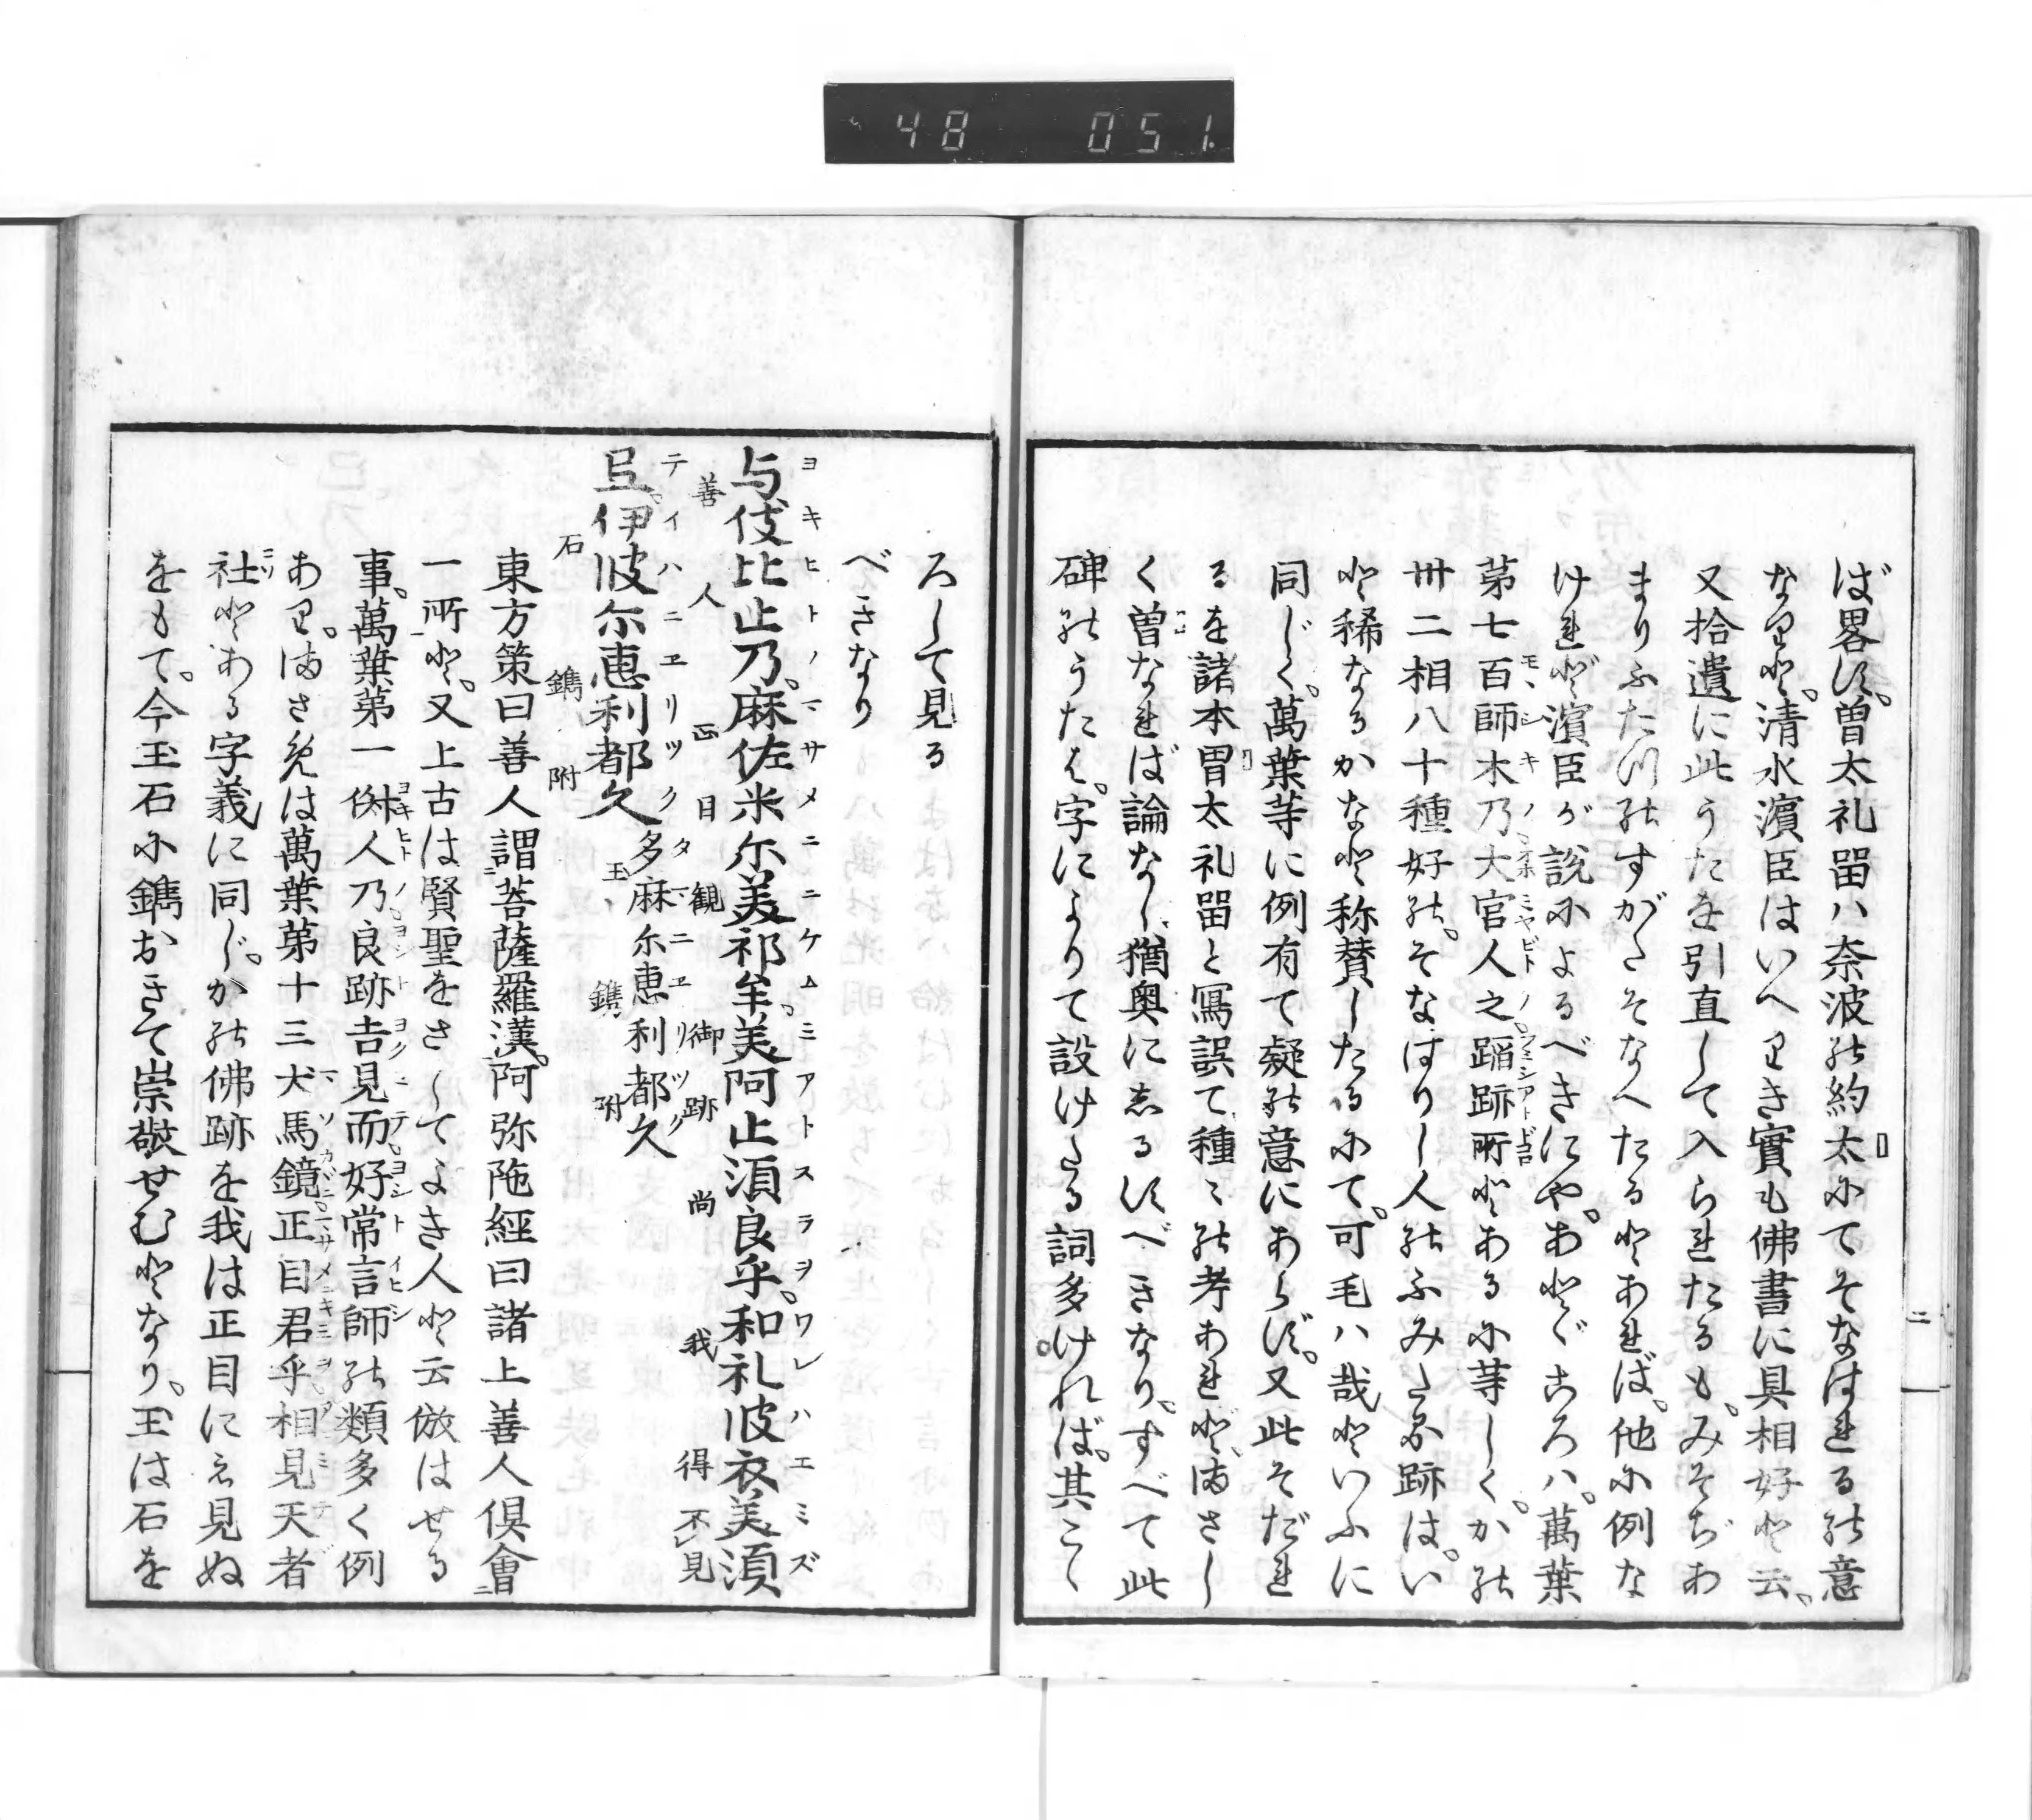 48 051.
ば畧す。曽太礼畄ハ奈波の約太にてそなはれる の意
なりと。清水濱臣はいへりき實も佛書に具相好と云。
又拾遺に此うたを引直して入られたるも。みそぢあ
まりふたつのすがたそなへたるとあれば。他に例な
けれど濱臣が説によるべきにや。あとどころハ。萬葉
第七百師木乃大官人之蹈跡所とあるに等しく。かの
卅二相八十種好の。そなはりし人のふみたる跡は。い
と稀なるかなと称賛したるにて。可毛ハ哉といふに
同じく。萬葉等に例有て疑の意にあらず。又此そだれ
るを諸本胃太礼畄と寫誤て種〻の考あれど。まさし
く曽なれば論なし猶奥にしるすべきなり。すべて此
碑のうたは。字によりて設けたる詞多ければ。其こゝ
二
ろして見る
べきなり
与伎比止乃。麻佐米尓美祁牟。美阿止須良乎。和礼波衣美須
ヨキヒトノマサメニミケムミアトスラヲワレハエミズ
善 人 正 目 観 御 跡 尚 我 得 不見
弖。伊波尓恵利都久 多麻尓恵利都久
テイハニヱリツク タマニヱリツク
石 鐫 附 玉 鐫 附
東方策曰善人謂菩薩羅漢。阿弥陁經曰諸上善人倶會
一所と。又上古は賢聖をさしてよき人と云倣はせる
事。萬葉第一淑人乃良跡吉見而好常言師の類多く例
あり。まさめは萬葉第十三犬馬鏡正目君乎相見天者
社とある字義に同じ。かの佛跡を我は正目にえ見ぬ
をもて。今玉石に鐫おきて崇敬せむとなり。玉は石を